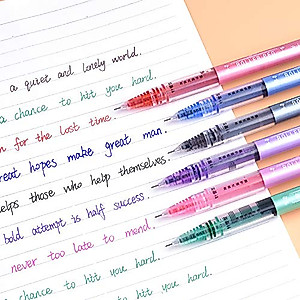 a quiet and lonely world.
a chance to hit you hard.
n for the lost time.
great hopes make great man.
helps those who help themselves.
bold attempt is half success.
never too late to mend.
chance to hit you hard.